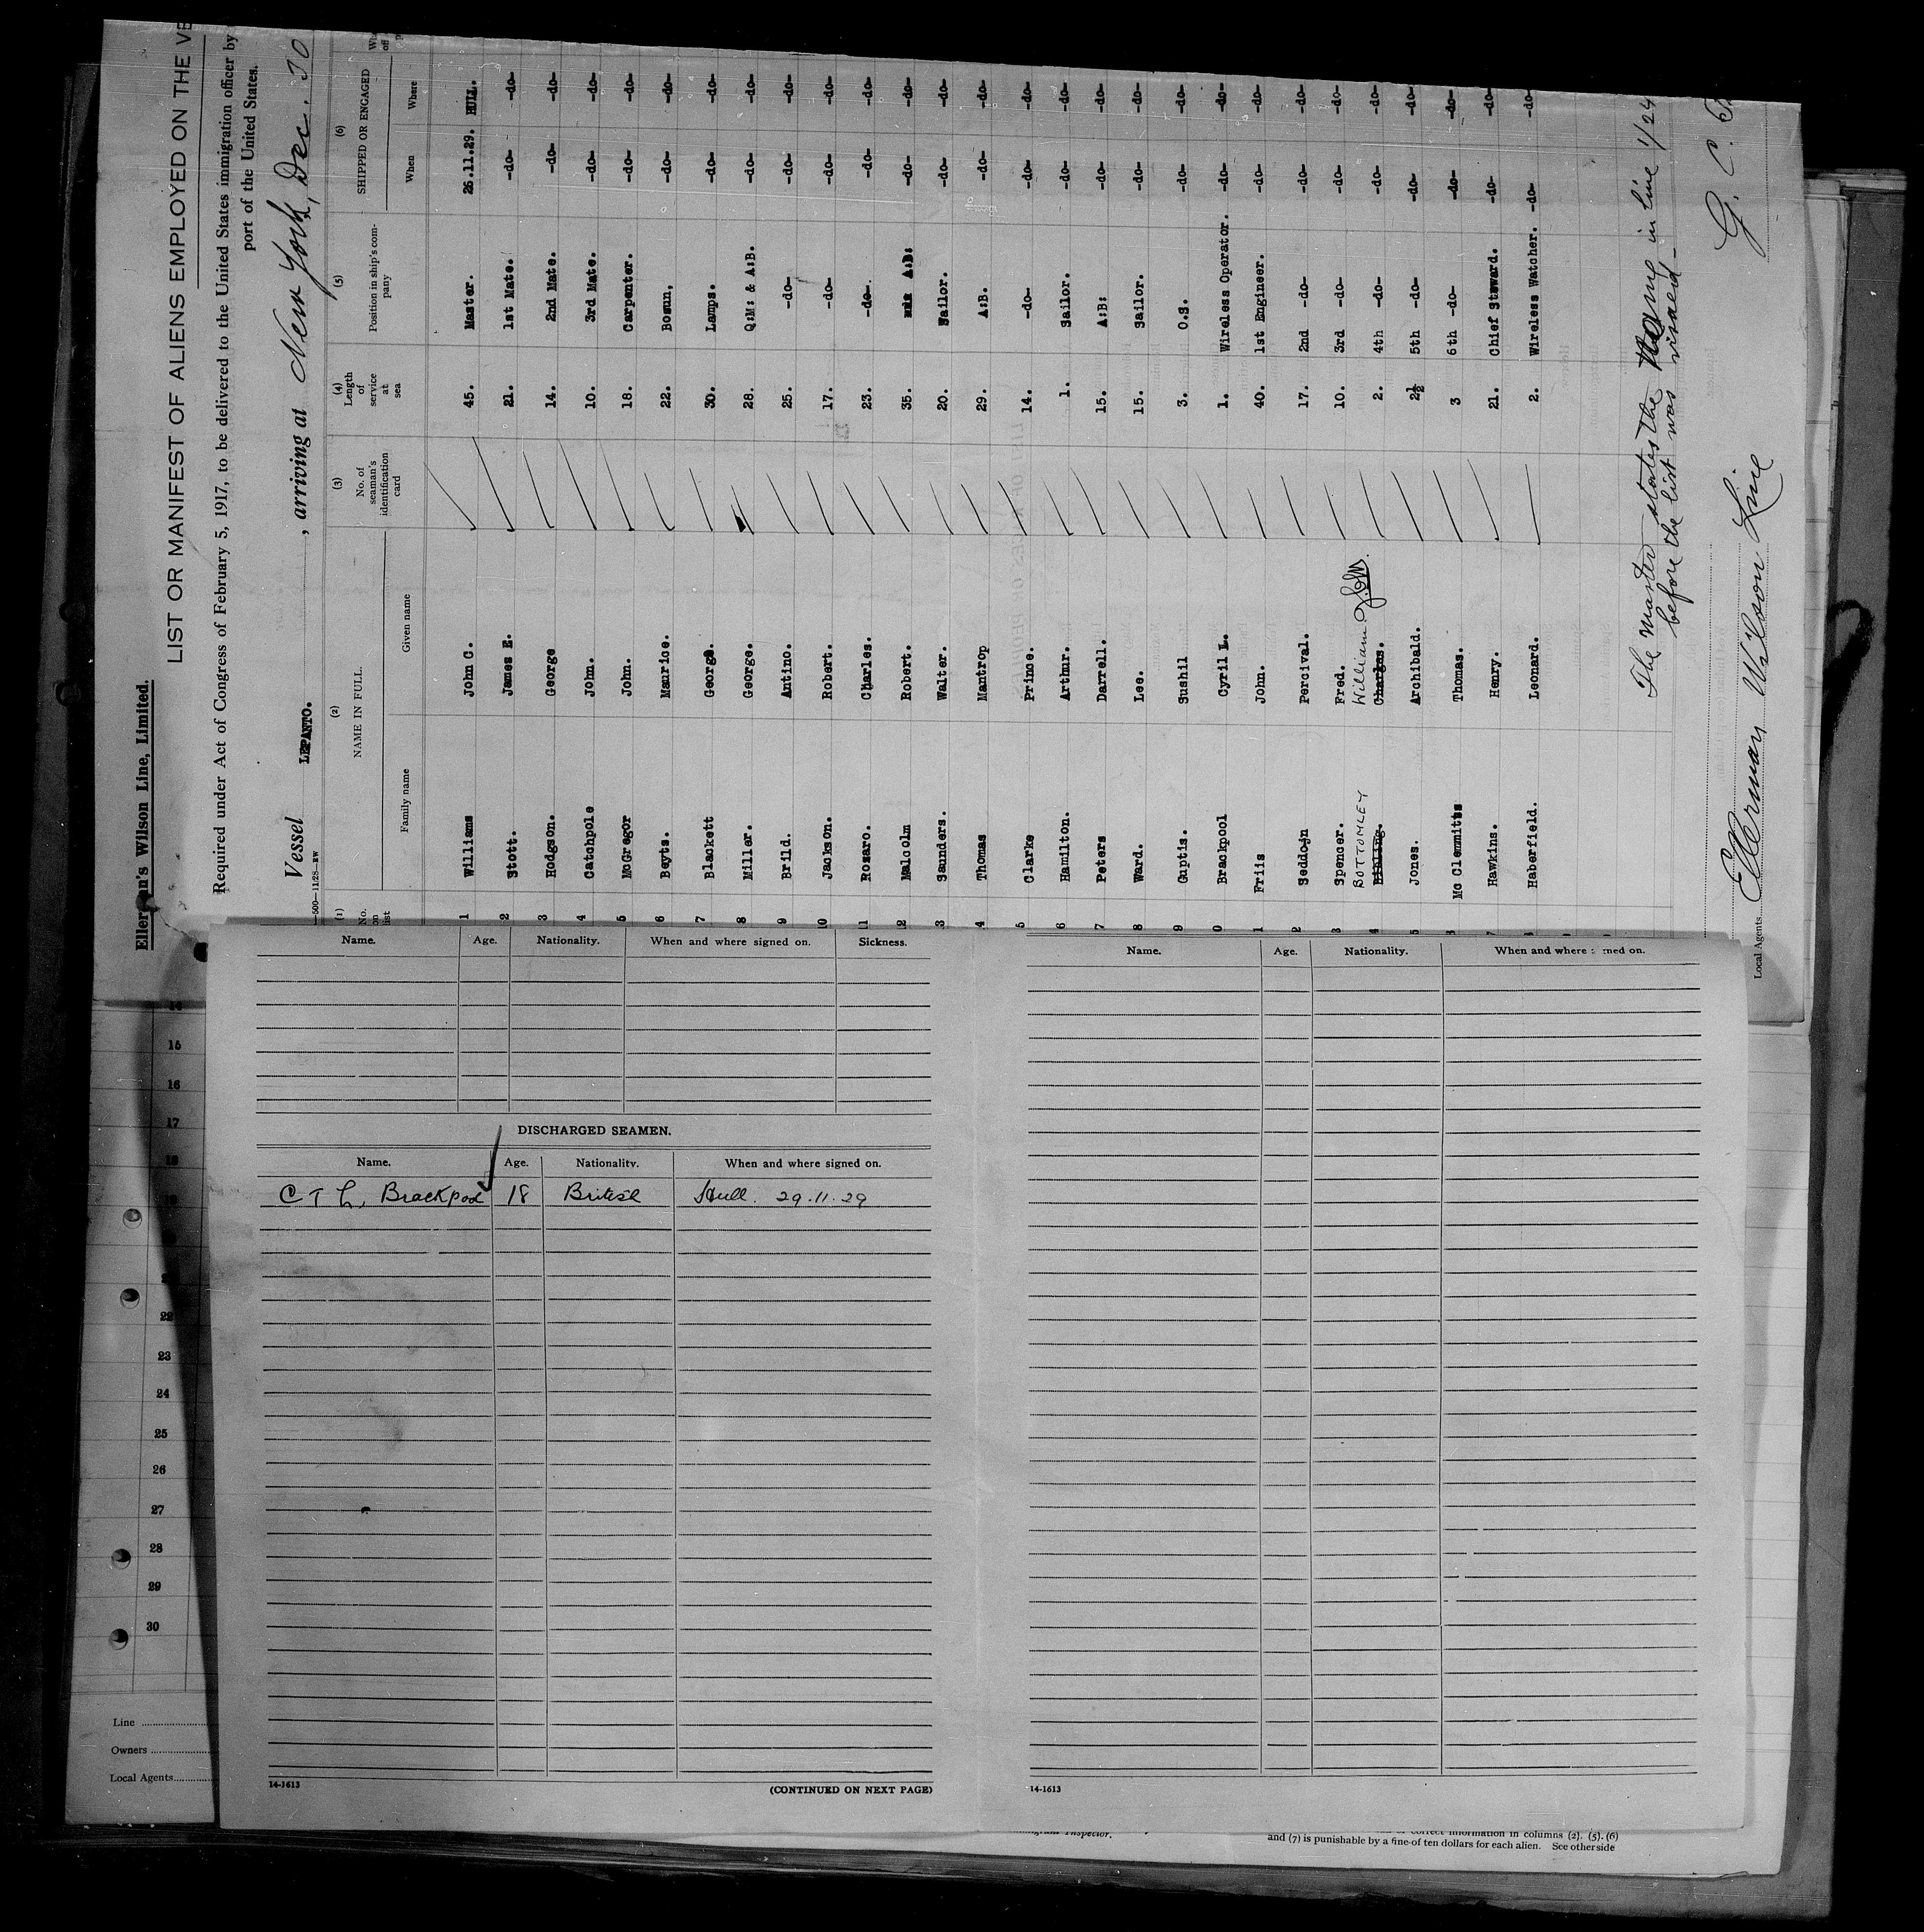 Ellerman's Wilson Line, Limited.
LIST OR MANIFEST OF ALIENS EMPLOYED ON THE
Required under Act of Congress of February 5, 1917, to be delivered to the United States immigration officer by
port of the United States.
Vessel LEPANTO. , arriving at New York, Dec. 30
—500—11/28—EW
(1) (2) (3) (4) (5) (6)
No. on list NAME IN FULL. No. of seaman's identification card Length of service at sea Position in ship's company SHIPPED OR ENGAGED
Family name Given name When Where
1 Williams John C. 45. Master. 26.11.29. HULL.
2 Stott. James E. 21. 1st Mate. -do- -do-
3 Hodgson. George 14. 2nd Mate. -do- -do-
4 Catchpole John. 10. 3rd Mate. -do- -do-
5 McGregor John. 18. Carpenter. -do- -do-
6 Beyts. Maurice. 22. Bosun. -do- -do-
7 Blackett George. 30. Lamps. -do- -do-
8 Miller. George. 28. Q:M: & A:B. -do- -do-
9 Brild. Antino. 25. -do- -do- -do-
10 Jackson. Robert. 17. -do- -do- -do-
11 Rozaro. Charles. 23. -do- -do- -do-
12 Malcolm Robert. 35. A:B: -do- -do-
3 Saunders. Walter. 20. Sailor. -do- -do-
4 Thomas Mantrop 29. A:B. -do- -do-
5 Clarke Prince. 14. -do- -do- -do-
6 Hamilton. Arthur. 1. Sailor. -do- -do-
7 Peters Darrell. 15. A:B: -do- -do-
8 Ward. Lee. 15. Sailor. -do- -do-
9 Guptis. Sushil 3. O.S. -do- -do-
0 Brackpool Cyril L. 1. Wireless Operator. -do- -do-
1 Friis John. 40. 1st Engineer. -do- -do-
2 Seddojn Percival. 17. 2nd -do- -do- -do-
3 Spencer. Fred. 10. 3rd -do- -do- -do-
BOTTOMLEY William
4 Charles. 2. 4th -do- -do- -do-
5 Jones. Archibald. 2½ 5th -do- -do- -do-
6 Mc Clemmitts Thomas. 3 6th -do- -do- -do-
7 Hawkins. Henry. 21. Chief Steward. -do- -do-
8 Haberfield. Leonard. 2. Wireless Watcher. -do- -do-
The master states the Name in line 1/24
before the list was visaed-
G. C.
Local Agents Ellerman Wilson Line
Name. Age. Nationality. When and where signed on. Sickness.
DISCHARGED SEAMEN.
Name. Age. Nationality. When and where signed on.
C T L, Brackpool 18 British Hull. 29.11.29
14-1613 (CONTINUED ON NEXT PAGE)
Name. Age. Nationality. When and where signed on.
14-1613
14
15
16
17
18
19
22
23
24
25
26
27
28
29
30
Line
Owners
Local Agents
Inspector.
correct information in columns (2). (5). (6)
and (7) is punishable by a fine of ten dollars for each alien. See other side